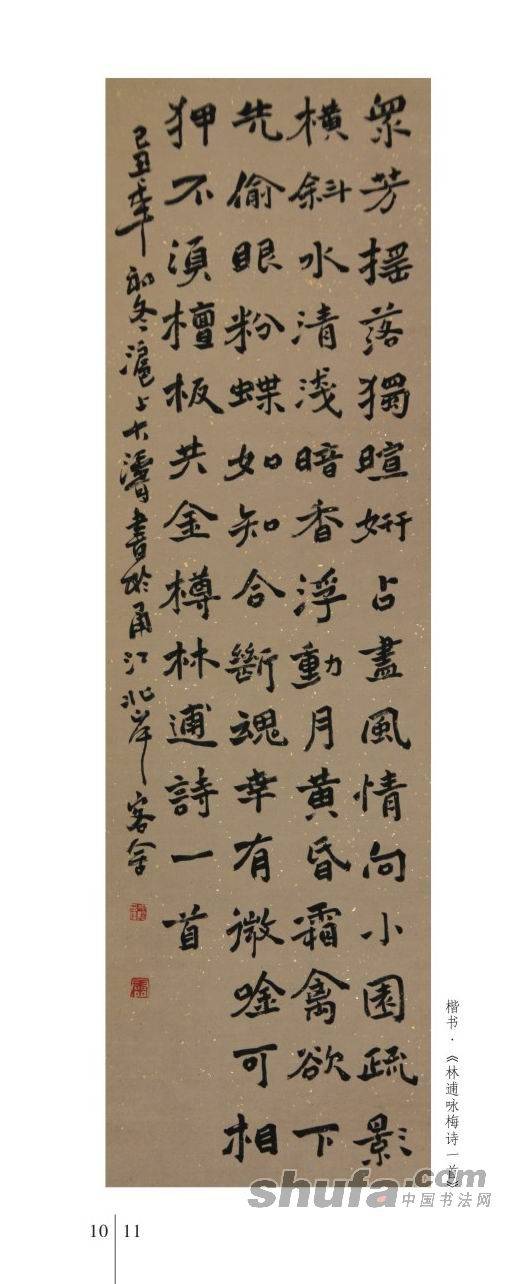 眾芳搖落獨暄妍占盡風情向小園疏影
橫斜水清淺暗香浮動月黃昏霜禽欲下
先偷眼粉蝶如知合斷魂幸有微唫可相
狎不須檀板共金樽林逋詩一首
己丑年初冬滬上大書於甬江北岸客舍
楷书·《林逋咏梅诗一首》
shufa.com
中国书法网
10 11